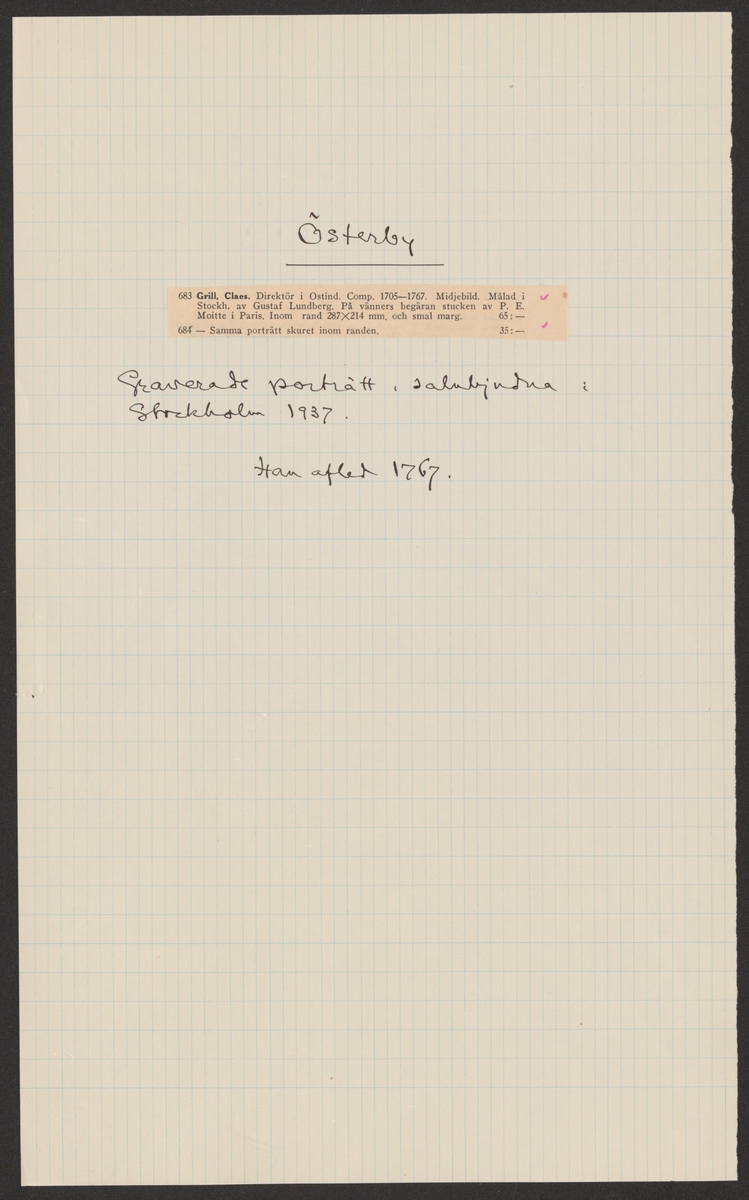 Österby
683 Grill, Claes. Direktör i Ostind. Comp. 1705—1767. Midjebild. Målad i
Stockh. av Gustaf Lundberg. På vänners begäran stucken av P. E.
Moitte i Paris. Inom rand 287×214 mm. och smal marg. 65:—
684 — Samma porträtt skuret inom randen. 35:—
Graverade porträtt, salubjudna i
Stockholm 1937.
Han afled 1767.